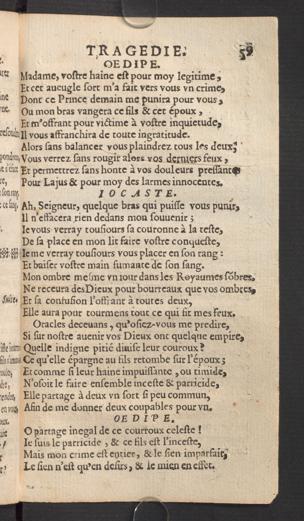 TRAGEDIE. 59
OEDIPE.
Madame, vostre haine est pour moy legitime,
Et cet aueugle sort m'a fait vers vous vn crime,
Donc ce Prince demain me punira pour vous,
Ou mon bras vangera ce fils & cet époux,
Et m'offrant pour victime à vostre inquietude,
Il vous affranchira de toute ingratitude.
Alors sans balancer vous plaindrez tous les deux,
Vous verrez sans rougir alors vos derniers feux,
Et permettrez sans honte à vos douleurs pressantes
Pour Lajus & pour moy des larmes innocentes.
IOCASTE.
Ah, Seigneur, quelque bras qui puisse vous punir,
Il n'effacera rien dedans mon souuenir;
Ie vous verray tousiours sa couronne à la teste,
De sa place en mon lit faire vostre conqueste,
Ie me verray tousiours vous placer en son rang:
Et baiser vostre main fumante de son sang.
Mon ombre mesme vn iour dans les Royaumes sõbres,
Ne receura des Dieux pour bourreaux que vos ombres,
Et sa confusion l'offrant à toutes deux,
Elle aura pour tourmens tout ce qui fit mes feux.
Oracles deceuans, qu'osiez-vous me predire,
Si sur nostre auenir vos Dieux ont quelque empire,
Quelle indigne pitié diuise leur couroux?
Ce qu'elle épargne au fils retombe sur l'époux;
Et comme si leur haine impuissante, ou timide,
N'osoit le faire ensemble inceste & parricide,
Elle partage à deux vn sort si peu commun,
Afin de me donner deux coupables pour vn.
OEDIPE.
O partage inegal de ce courroux celeste!
Ie suis le parricide, & ce fils est l'inceste,
Mais mon crime est entier, & le sien imparfait,
Le sien n'est qu'en desirs, & le mien en effet.